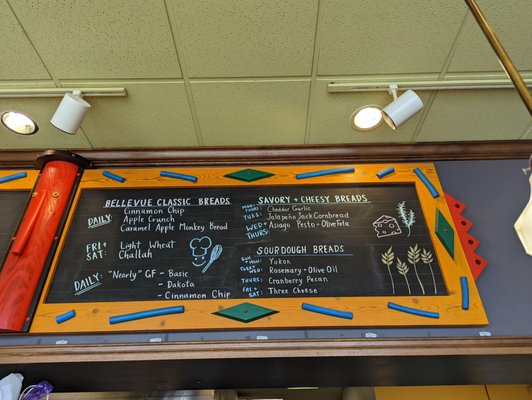 BELLEVUE CLASSIC BREADS
DAILY:
Cinnamon Chip
Apple Crunch
Caramel Apple Monkey Bread
FRI + SAT:
Light Wheat
Challah
DAILY:
"Nearly" GF - Basic
- Dakota
- Cinnamon Chip
SAVORY + CHEESY BREADS
MON: Cheddar Garlic
TUES: Jalapeño Jack Cornbread
WED + THURS: Asiago Pesto + Olive Feta
SOURDOUGH BREADS
SUN + MON: Yukon
TUES + WED: Rosemary + Olive Oil
THURS: Cranberry Pecan
FRI + SAT: Three Cheese